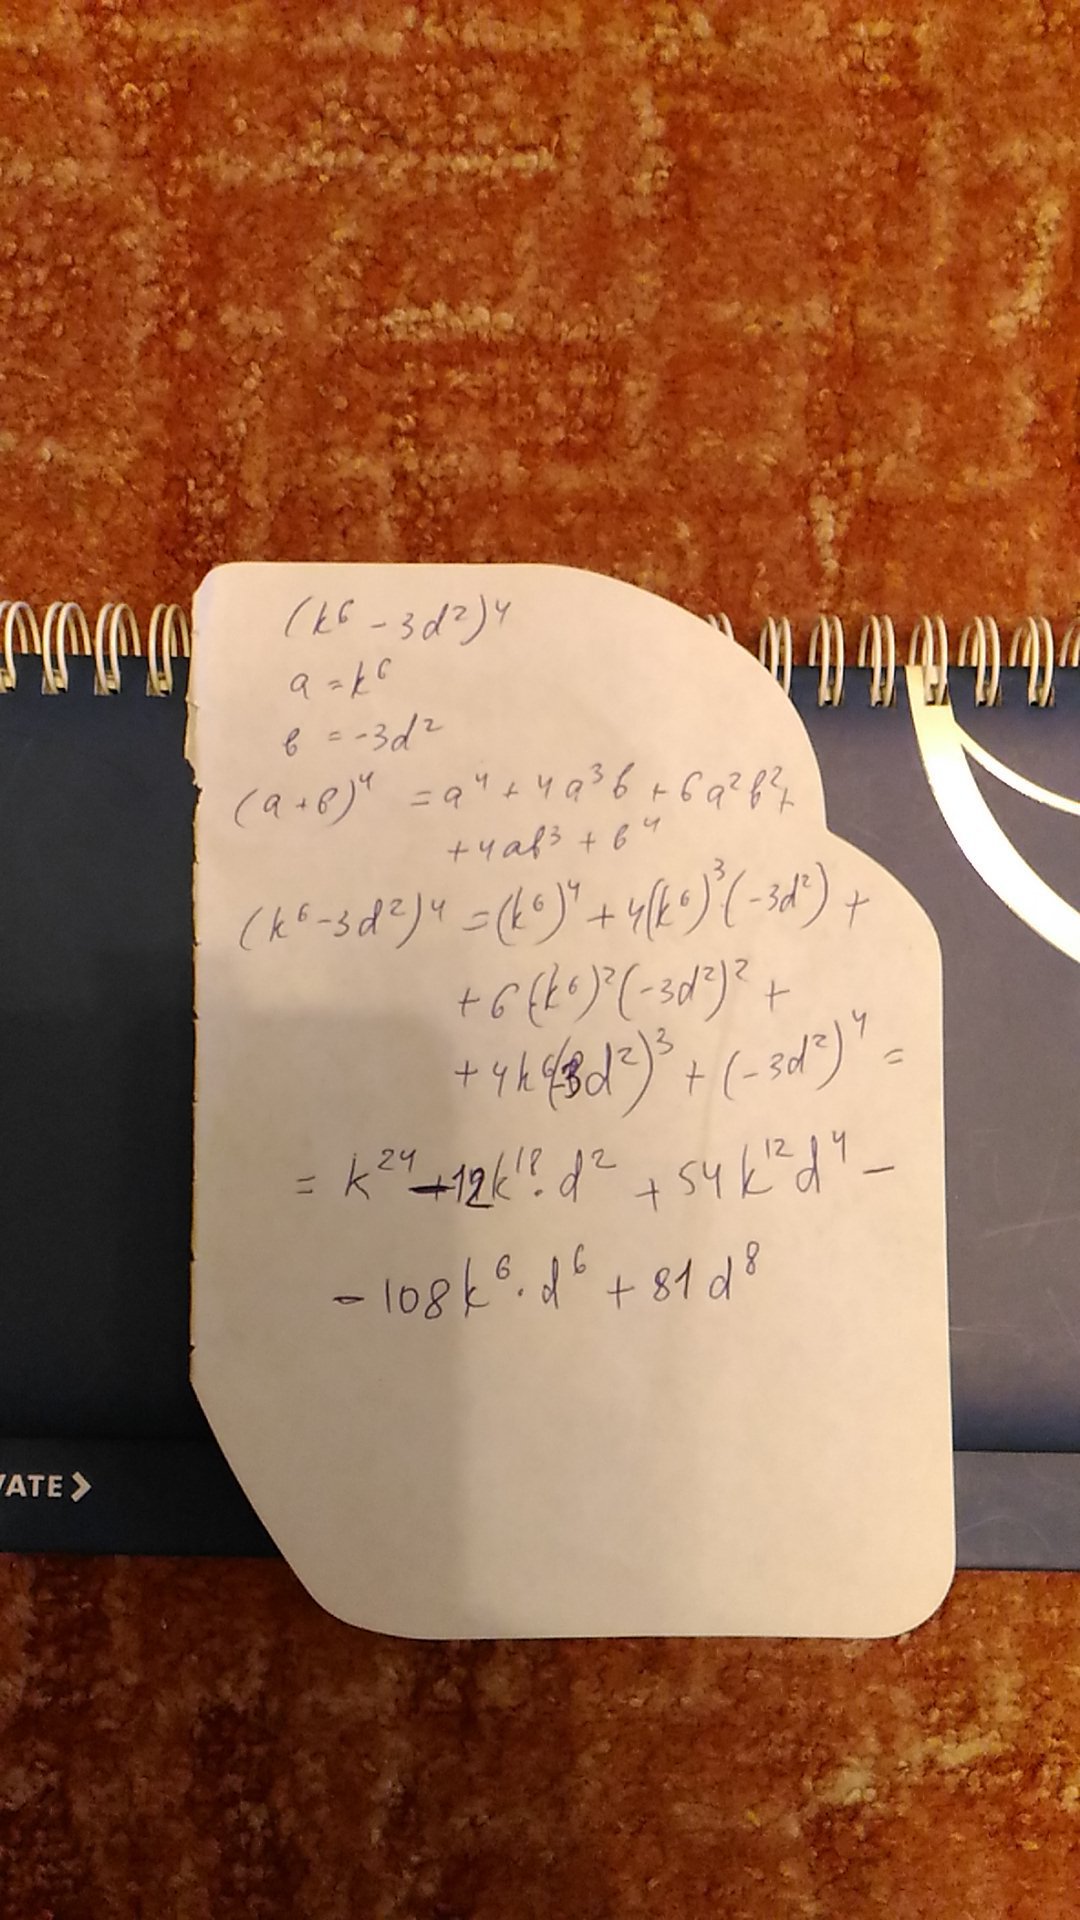 (k⁶ - 3d²)⁴
a = k⁶
в = -3d²
(a + в)⁴ = a⁴ + 4a³в + 6a²в² +
+ 4aв³ + в⁴
(k⁶ - 3d²)⁴ = (k⁶)⁴ + 4(k⁶)³·(-3d²) +
+ 6(k⁶)²(-3d²)² +
+ 4k⁶(-3d²)³ + (-3d²)⁴ =
= k²⁴ - 12k¹⁸·d² + 54k¹²d⁴ -
- 108k⁶·d⁶ + 81d⁸
VATE >